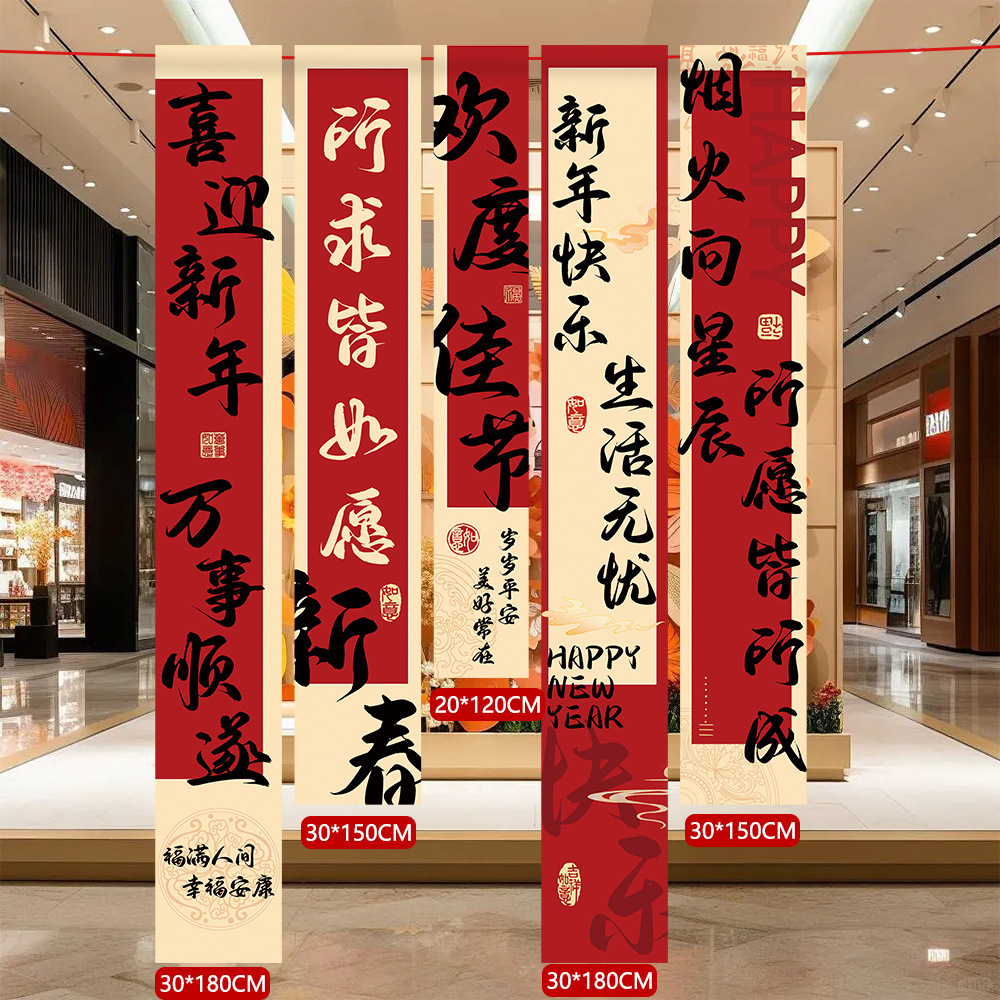 喜迎新年
如意
万事顺遂
福满人间
幸福安康
30*180CM
所求皆如愿
如意
新春
30*150CM
欢度佳节
如意
岁岁平安
美好常在
20*120CM
新年快乐
如意
生活无忧
HAPPY
NEW
YEAR
快乐
吉祥
如意
30*180CM
HAPPY
烟火向星辰
所愿皆所成
30*150CM